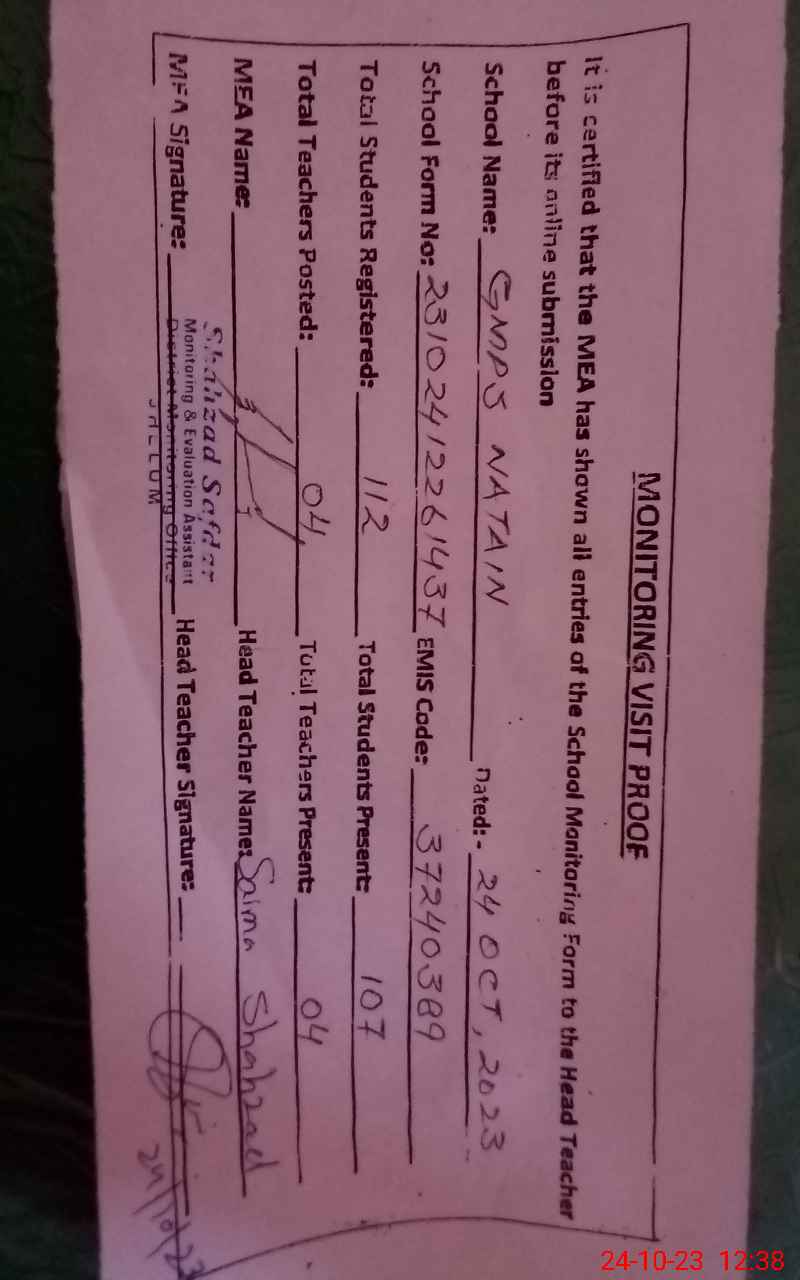 MONITORING VISIT PROOF
It is certified that the MEA has shown all entries of the School Monitoring Form to the Head Teacher
before its online submission
School Name: GMPS NATAIN Dated:- 24 OCT, 2023
School Form No: 23102412261437 EMIS Code: 37240389
Total Students Registered: 112 Total Students Present: 107
Total Teachers Posted: 04 Total Teachers Present: 04
MEA Name: Head Teacher Name: Saima Shahzad
Shahzad Safdar
Monitoring & Evaluation Assistant
District Monitoring Office
JHELUM
MEA Signature: Head Teacher Signature:
24/10/23
24-10-23 12:38